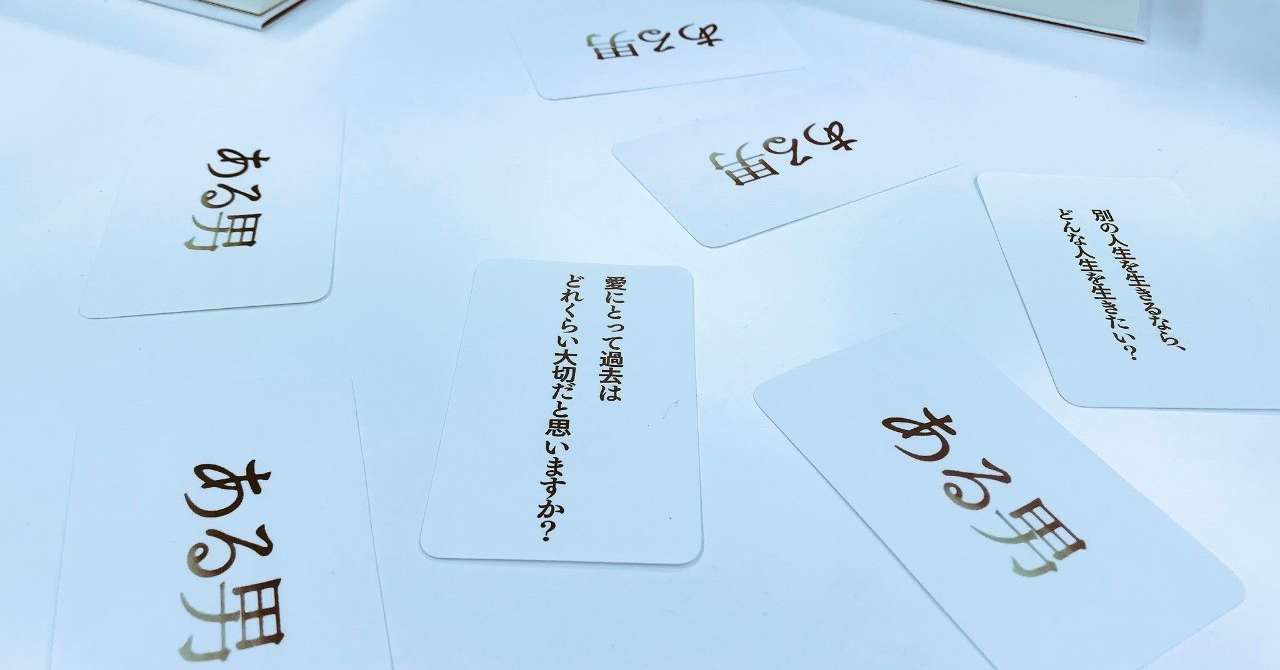 ある男
ある男
ある男
別の人生を生きるなら、
どんな人生を生きたい？
愛にとって過去は
どれくらい大切だと思いますか？
ある男
ある男